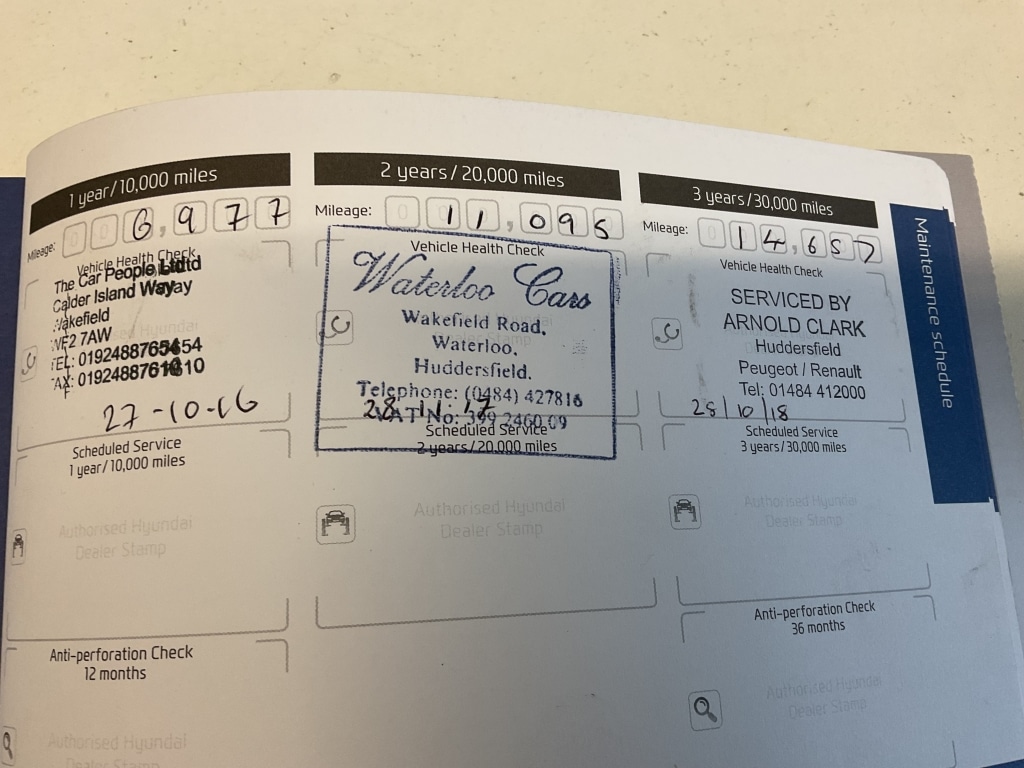 1 year/10,000 miles
Mileage: 0 0 6,977
Vehicle Health Check
The Car People Ltd
Calder Island Way
Wakefield
WF2 7AW
TEL: 01924887654
FAX: 01924887610
27-10-16
Scheduled Service
1 year/10,000 miles
Authorised Hyundai
Dealer Stamp
Anti-perforation Check
12 months
Authorised Hyundai
Dealer Stamp
2 years/20,000 miles
Mileage: 0 11,095
Vehicle Health Check
Waterloo Cars
Wakefield Road,
Waterloo,
Huddersfield.
Telephone: (0484) 427816
28.11.17
VAT No:
Scheduled Service
2 years/20,000 miles
Authorised Hyundai
Dealer Stamp
3 years/30,000 miles
Mileage: 14,657
Vehicle Health Check
SERVICED BY
ARNOLD CLARK
Huddersfield
Peugeot / Renault
Tel: 01484 412000
28/10/18
Scheduled Service
3 years/30,000 miles
Authorised Hyundai
Dealer Stamp
Anti-perforation Check
36 months
Authorised Hyundai
Dealer Stamp
Maintenance schedule